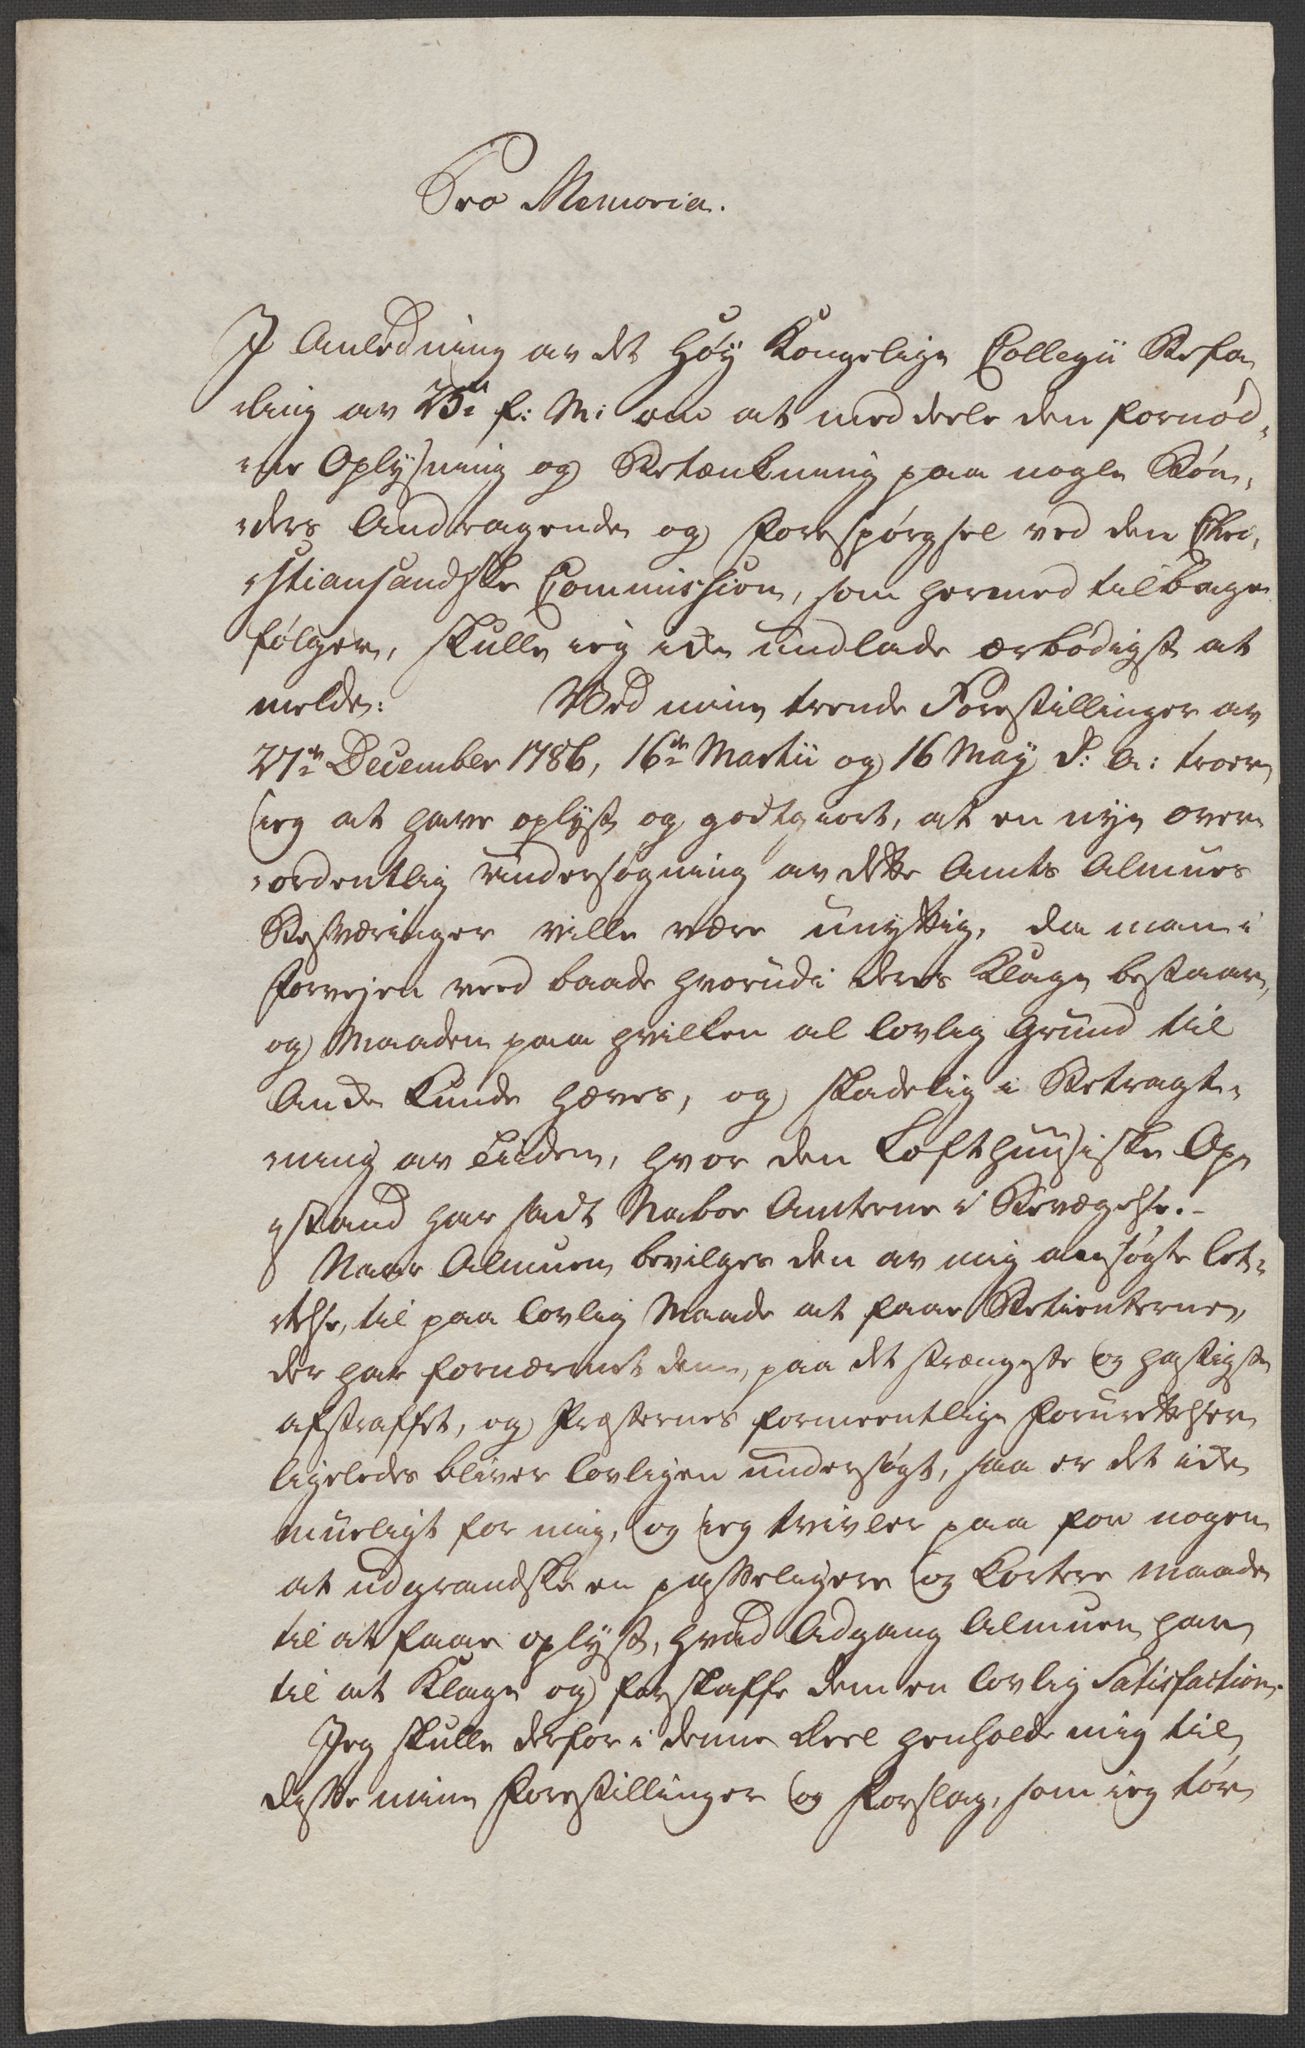 Pro Memoria.
I Anledning av det Høy Kongelige Collegii Befa
ling av 25de f: M: om at meddeele den fornød„
„ne Oplysning og Betænkning paa nogle Bøn„
„ders Andragende og Forespørgsel ved den Chri„
„stiansandske Commission, som hermed tilbage
følger, skulle ieg icke undlade ærbødigst at
melde: Ved mine trende Forestillinger av
27de December 1786, 16de Martii og 16 May d: A: troer
ieg at have oplyst og godtgiort, at en nye over
„ordentlig undersøgning av dette Amts Almues
Besværinger ville være unyttig, da man i
forvejen veed baade hvorudi deres Klage bestaar,
og Maaden paa hvilken al lovlig Grund til
Ancke kunde hæves, og skadelig i Betragt„
„ning av Tiiden, hvor den Lofthuusiske Op„
„stand har sadt Naboe Amterne i Bevægelse.-
Naar Almuen bevilges den av mig ansøgte let„
„telse, til paa lovlig Maade at faae Betienterne,
der har fornærmet dem, paa det strængeste og hastigste
afstraffet, og Præsternes formeentlige Forurettelser
ligeledes bliver lovligen undersøgt, saa er det icke
mueligt for mig, og ieg tvivler paa for nogen
at udgrandske en passeligere og kortere Maade
til at faae oplyst, hvad Adgang Almuen har
til at Klage og forskaffe dem en lovlig Satisfaction.
Jeg skulle derfor i denne Deel henholde mig til
disse mine Forestillinger og Forslag, som ieg tør